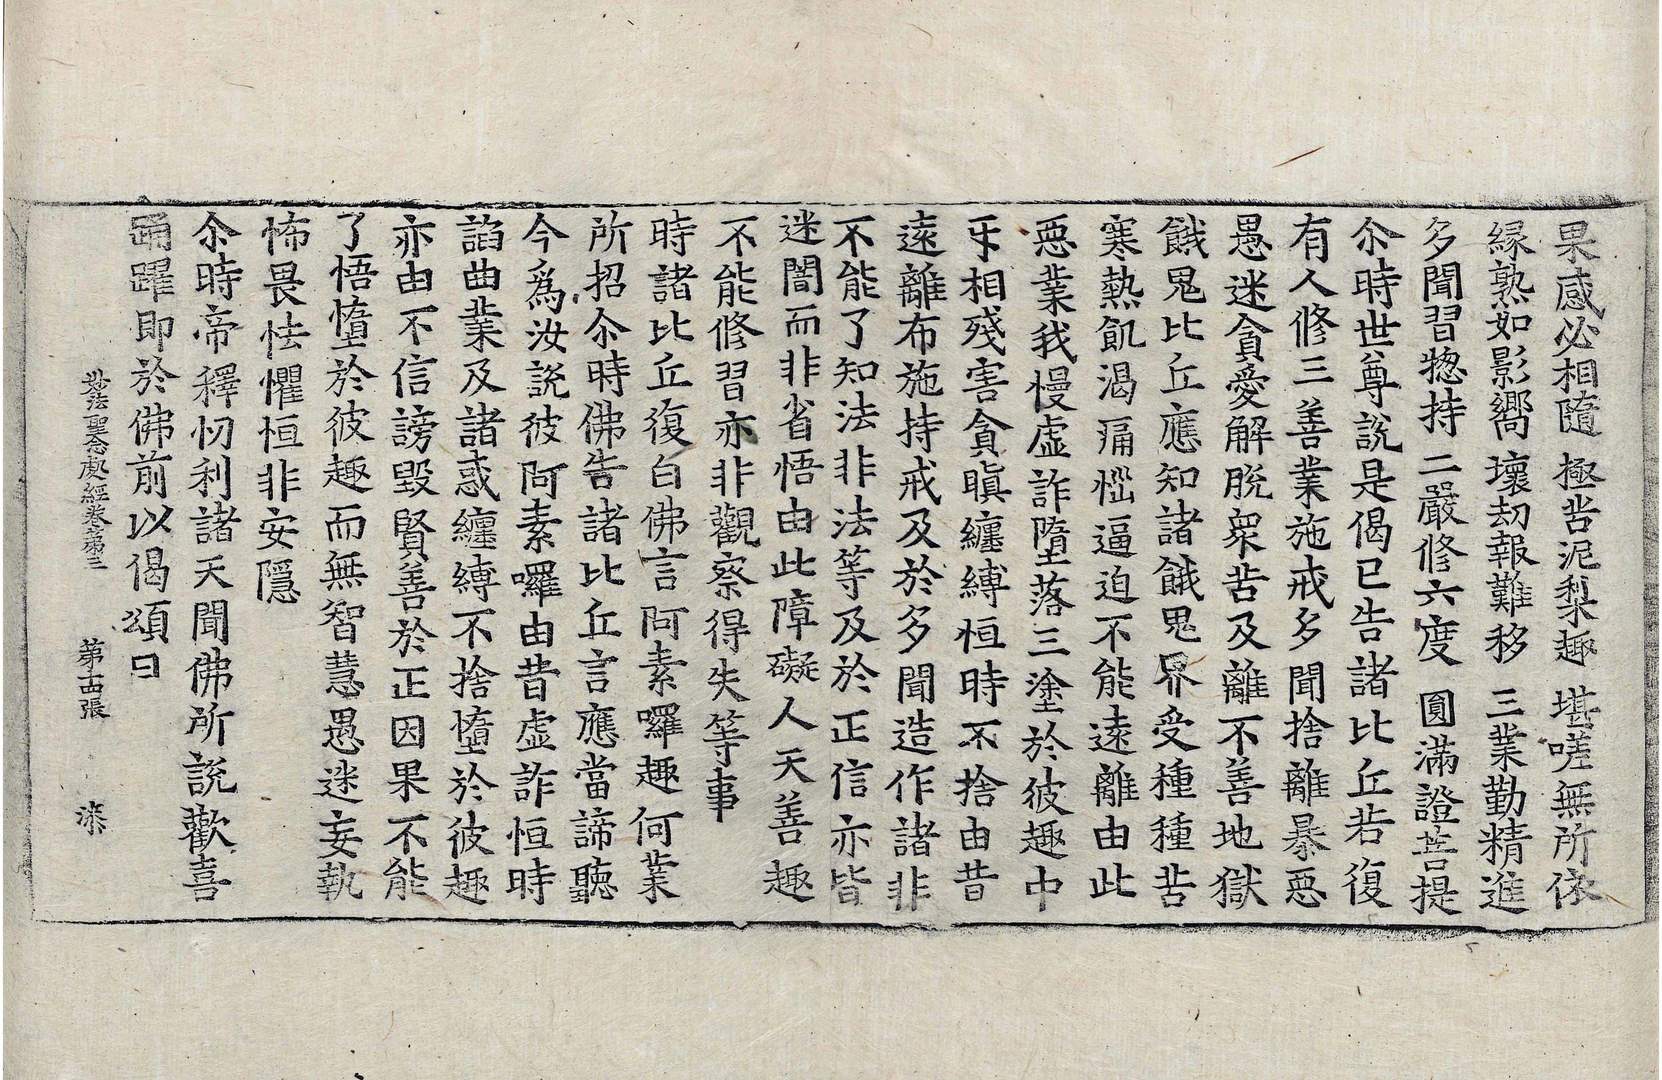 果感必相隨 極苦泥梨趣 堪嗟無所依
緣熟如影嚮 壞劫報難移 三業勤精進
多聞習揔持 二嚴修六度 圓滿證菩提
尒時世尊說是偈已告諸比丘若復
有人修三善業施戒多聞捨離暴惡
愚迷貪愛解脫衆苦及離不善地獄
餓鬼比丘應知諸餓鬼界受種種苦
寒熱飢渴痛惱逼迫不能遠離由此
惡業我慢虛詐墮落三塗於彼趣中
牙相殘害貪瞋纏縛恒時不捨由昔
遠離布施持戒及於多聞造作諸非
不能了知法非法等及於正信亦皆
迷闇而非省悟由此障礙人天善趣
不能修習亦非觀察得失等事
時諸比丘復白佛言阿素囉趣何業
所招尒時佛告諸比丘言應當諦聽
今爲汝說彼阿素囉由昔虛詐恒時
諂曲業及諸惑纏縛不捨墮於彼趣
亦由不信謗毀賢善於正因果不能
了悟墮於彼趣而無智慧愚迷妄執
怖畏怯懼恒非安隱
尒時帝釋忉利諸天聞佛所說歡喜
踊躍即於佛前以偈頌曰
妙法聖念處經卷第三 第十四張 漆